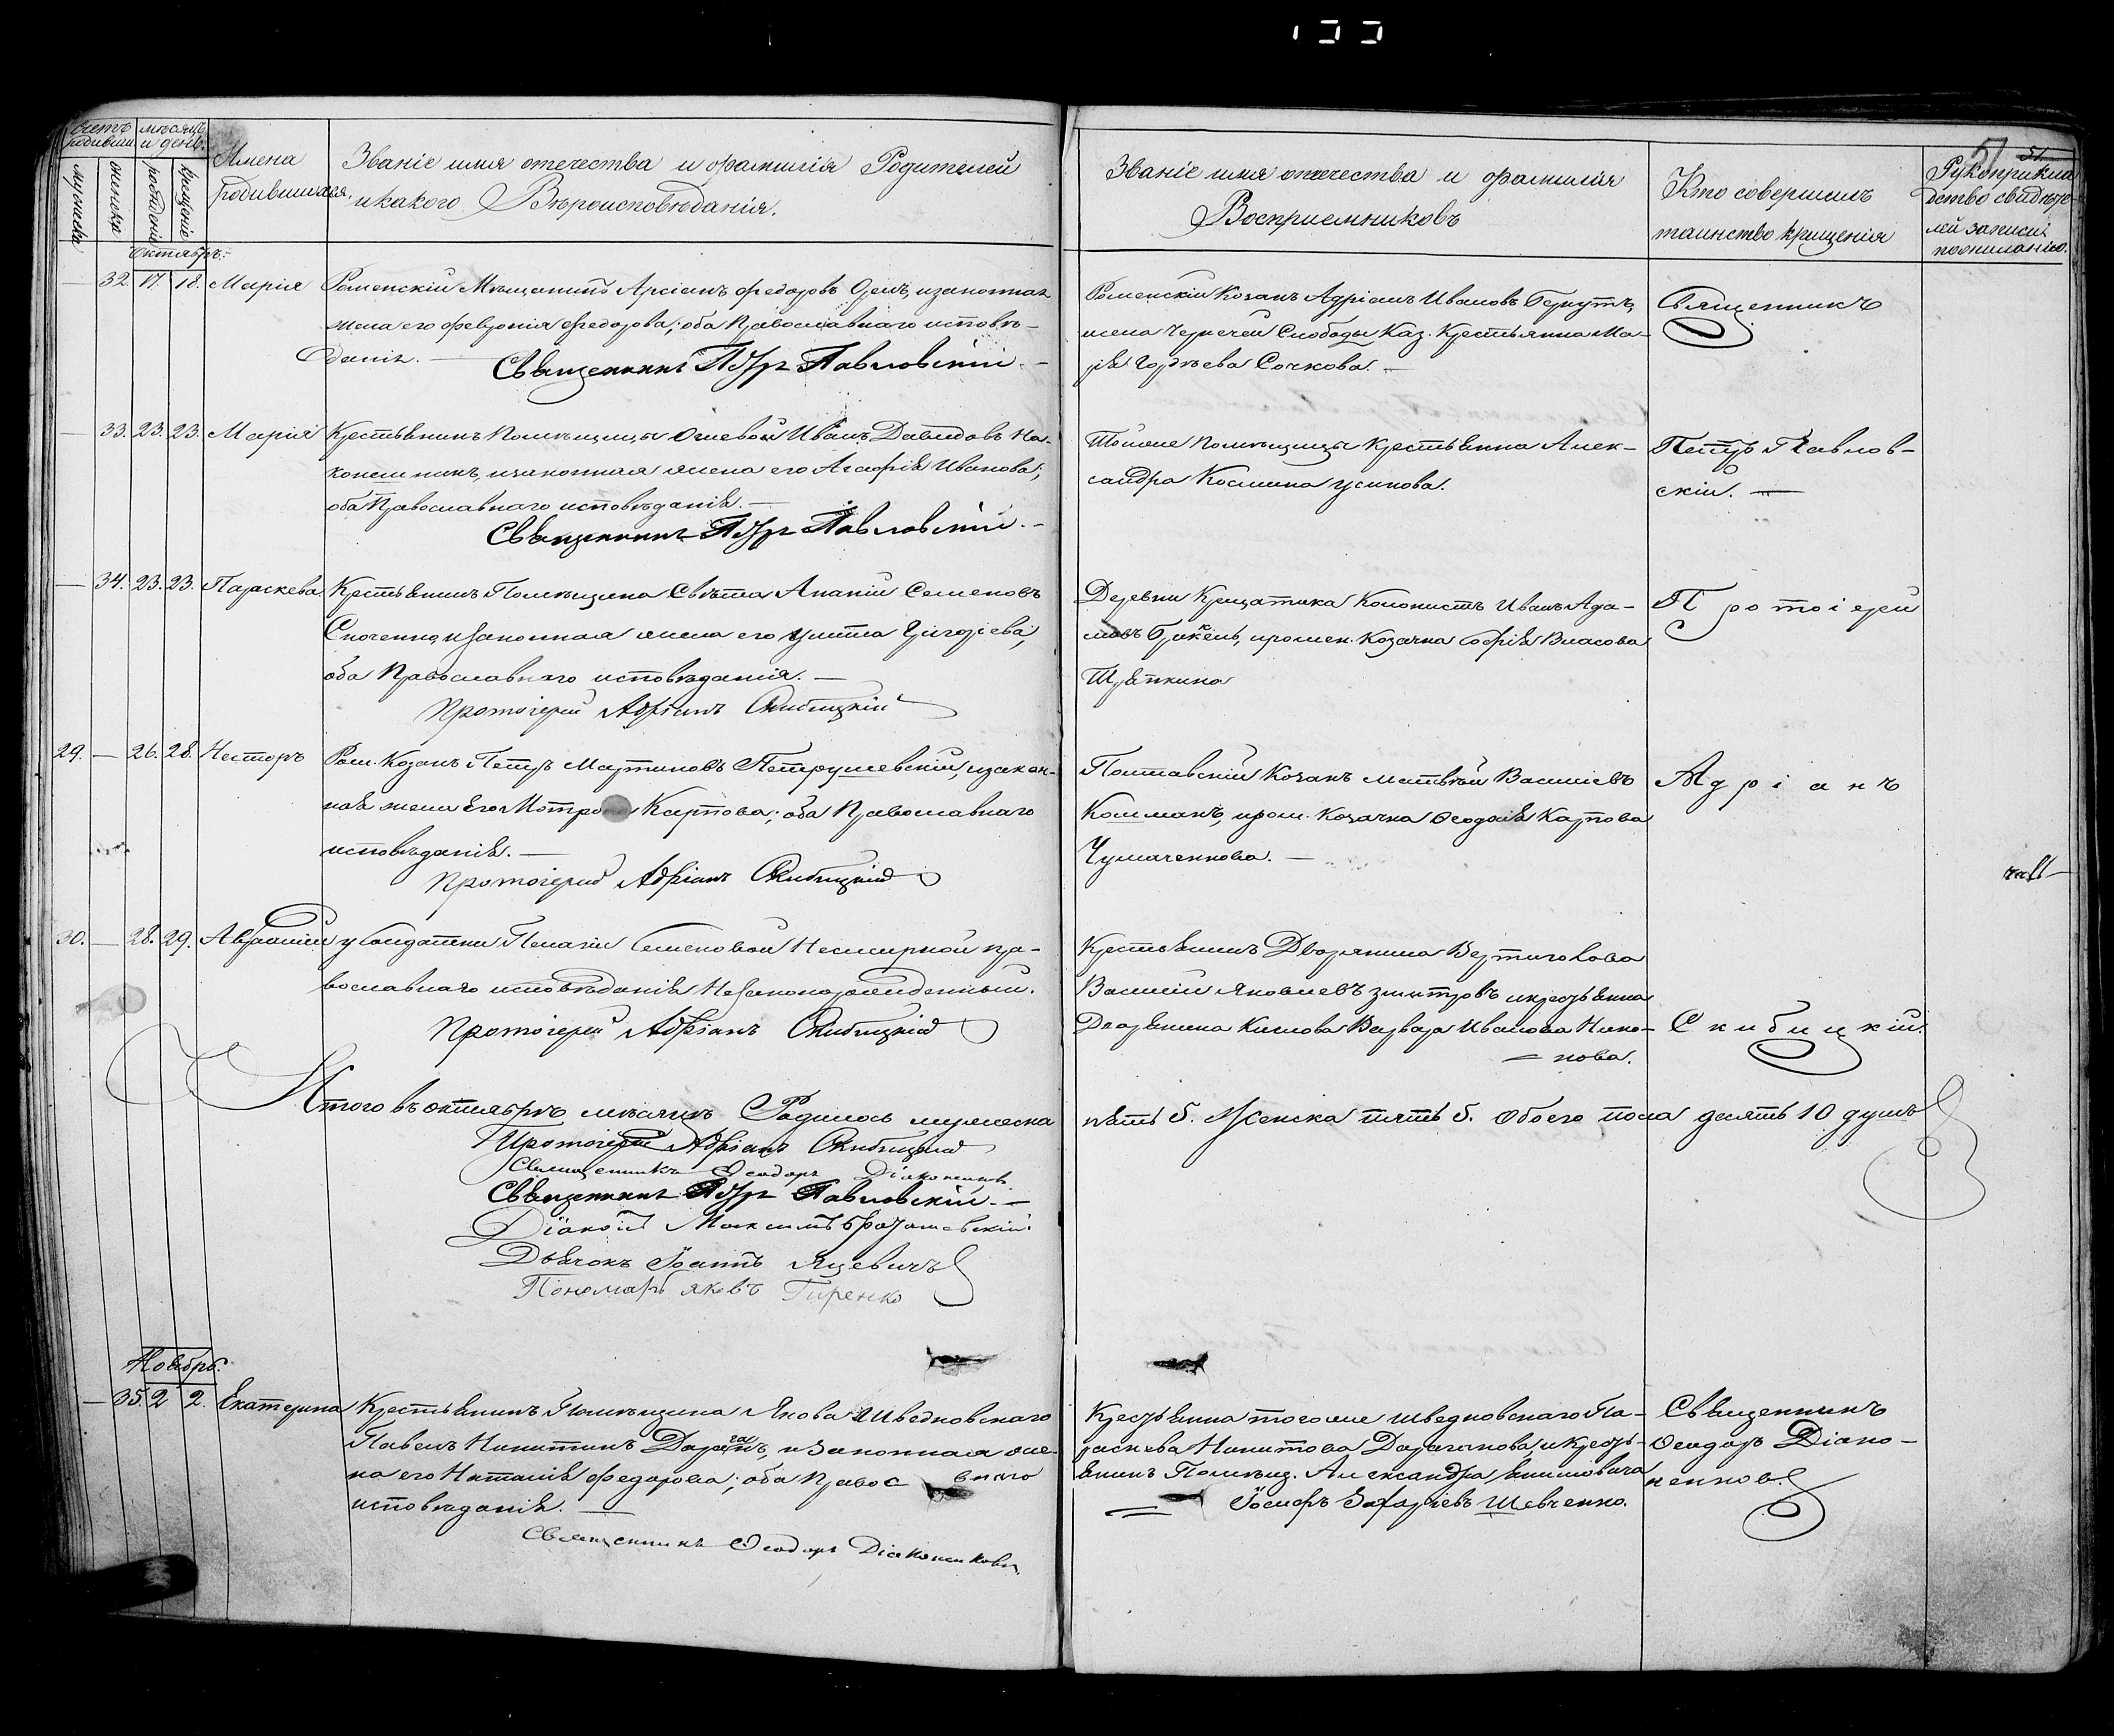 Счетъ родивших.
мѣсяцъ и день.
мужеска
женска
рожденія
крещенія
Имена родившихся,
Званіе имя отечества и фамилія Родителей
и какого Вѣроисповѣданія.
Званіе имя отечества и фамилія
Воспріемниковъ
Кто совершилъ
таинство крещенія
Рукоприкла
дство свидѣте-
лей записи
по желанію.
51
Октябрь.
— 32. 17. 18. Марія
Роменскій Мещанинъ федоровъ изаконная
жена его Февронія Федорова; оба Православнаго исповѣ-
данія. —
Священникъ Петръ Павловскій. —
Роменскій Козакъ Адріанъ Ивановъ Беркутъ,
Слободы Каз. Крестьянка Ма-
рія Гордѣева Сочкова. —
Священникъ
— 33. 23. 23. Марія
Крестьянинъ Помѣщицы Иванъ Давидовъ На-
конешнакъ, изаконная жена его Агафія Иванова;
оба Православнаго исповѣданія. —
Священникъ Петръ Павловскій. —
Тойже Помѣщицы Крестьянка Алек-
сандра Космина
Петръ Павлов-
скій. —
— 34. 23. 23. Параскева
Крестьянинъ Помѣщика Ананій Семеновъ
изаконная жена его Григорьева,
оба Православнаго исповѣданія. —
Протоіерей Адріанъ Скибицкій
Деревни Крещатика Колонистъ Иванъ Ада-
мовъ иромен. Козачка Софія Власова
Протоіерей
29. — 26. 28. Несторъ
Ром. Козакъ Петръ Мартиновъ Петрушевскій, изакон-
ная жена его Карпова; оба Православнаго
исповѣданія. —
Протоіерей Адріанъ Скибицкій
Полтавскій Козакъ Матвѣй Васильевъ
иром. Козачка Феодосія Карпова
Чумаченкова. —
Адріанъ
30. — 28. 29. Авраамій
у Солдатки Пелагіи Семеновой Несмирной пра-
вославнаго исповѣданія Незаконорожденный.
Протоіерей Адріанъ Скибицкій
Крестьянинъ Дворянина
Василій Яковлевъ икрестьянка
Дворянина Варвара Иванова Нико-
= нова.
Скибицкій.
Итого въ октябрѣ мѣсяцѣ Родилось мужеска
пять 5. Женска пять 5. обоего пола десять 10 душъ
Протоіерей Адріанъ Скибицкій
Священникъ Феодоръ Діаконенковъ
Священникъ Петръ Павловскій. —
Діаконъ Максимъ
Дьячокъ Іоаннъ Яцевичъ
Пономарь Яковъ Гиренко
Ноябрь.
— 35. 2 2. Екатерина
Крестьянинъ Помѣщика Якова Шведковскаго
Павелъ Никитинъ Дараганъ, изаконная же-
на его Наталія Федорова; оба Правос внаго
исповѣданія. —
Священникъ Феодоръ Діаконенковъ
Крестьянка тогоже Шведковскаго Па-
раскева Никитова Дараганова, икресть-
янинъ Помѣщ. Александра
Іосифъ Захаріевъ Шевченко.
Священникъ
Феодоръ Діако-
ненковъ.